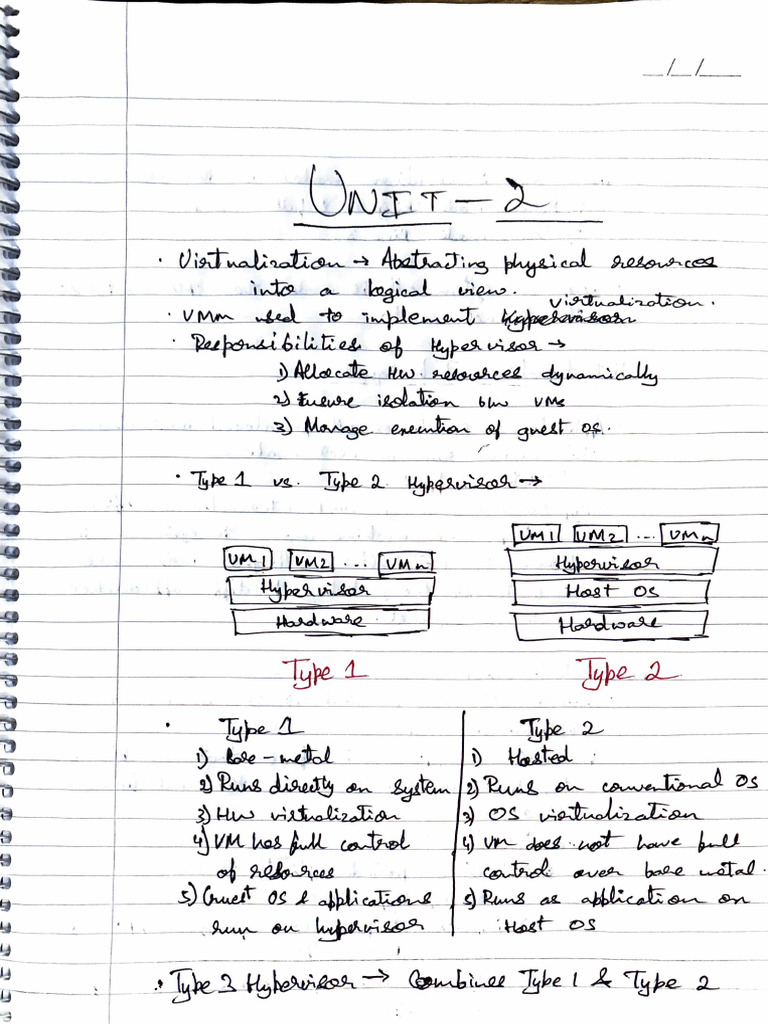 _/_/_
UNIT-2
· Virtualization → Abstracting physical resources
into a logical view.
virtualization.
· VMM used to implement Hypervisor
· Responsibilities of Hypervisor →
1) Allocate HW resources dynamically
2) Ensure isolation b/w VMs
3) Manage execution of guest OS.
· Type 1 vs. Type 2 Hypervisor →
VM1 VM2 ... VMn
Hypervisor
Hardware
Type 1
VM1 VM2 ... VMn
Hypervisor
Host OS
Hardware
Type 2
· Type 1
1) Bare-metal
2) Runs directly on system
3) HW virtualization
4) VM has full control
of resources
5) Guest OS & applications
run on hypervisor
Type 2
1) Hosted
2) Runs on conventional OS
3) OS virtualization
4) VM does not have full
control over bare metal.
5) Runs as application on
Host OS
· Type 3 Hypervisor → Combines Type 1 & Type 2